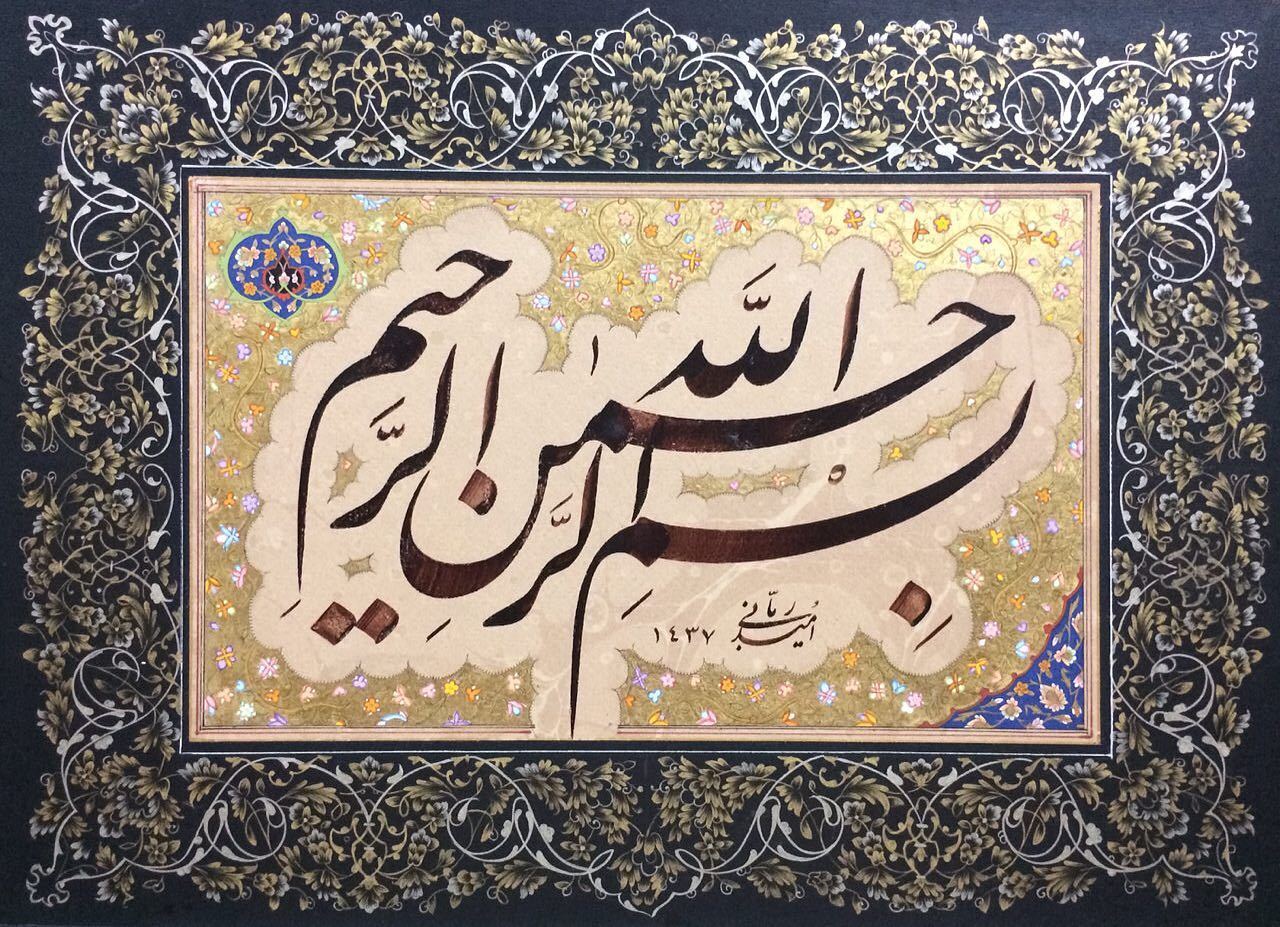 بِسْمِ اللّٰه الرَّحْمٰنِ الرَّحیمِ
امید ربّانی
۱۴۳۷